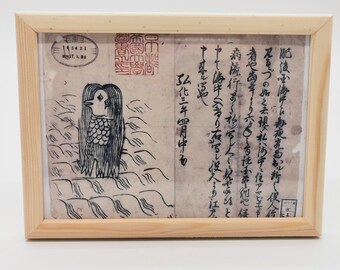 肥後国海中江毎夜光物出ル所之役人行
見るニづの如く者現ス私ハ海中ニ住アマビヱト申
者也当年より六ケ年之間諸国豊作也併
病流行早々私ヲ写シ人々ニ見セ候得と
申て海中へ入けり右写シ役人より江戸江
申来ル写也
弘化三年四月中旬